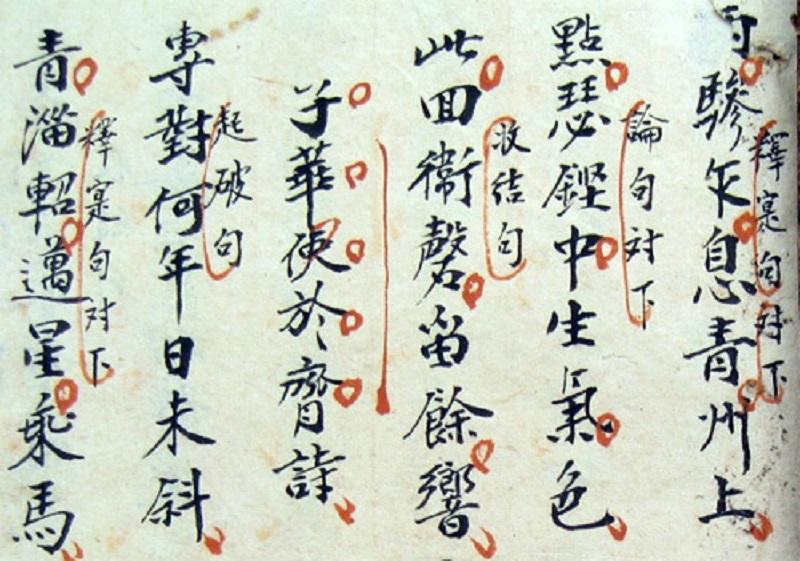 釋寔句対下
驂乍息青州上
論句対下
點瑟鏗中生氣色
收結句
此回衛磬留餘響
子華使於齊詩
起破句
専對何年日未斜
釋寔句対下
青淄軺邁星乘馬